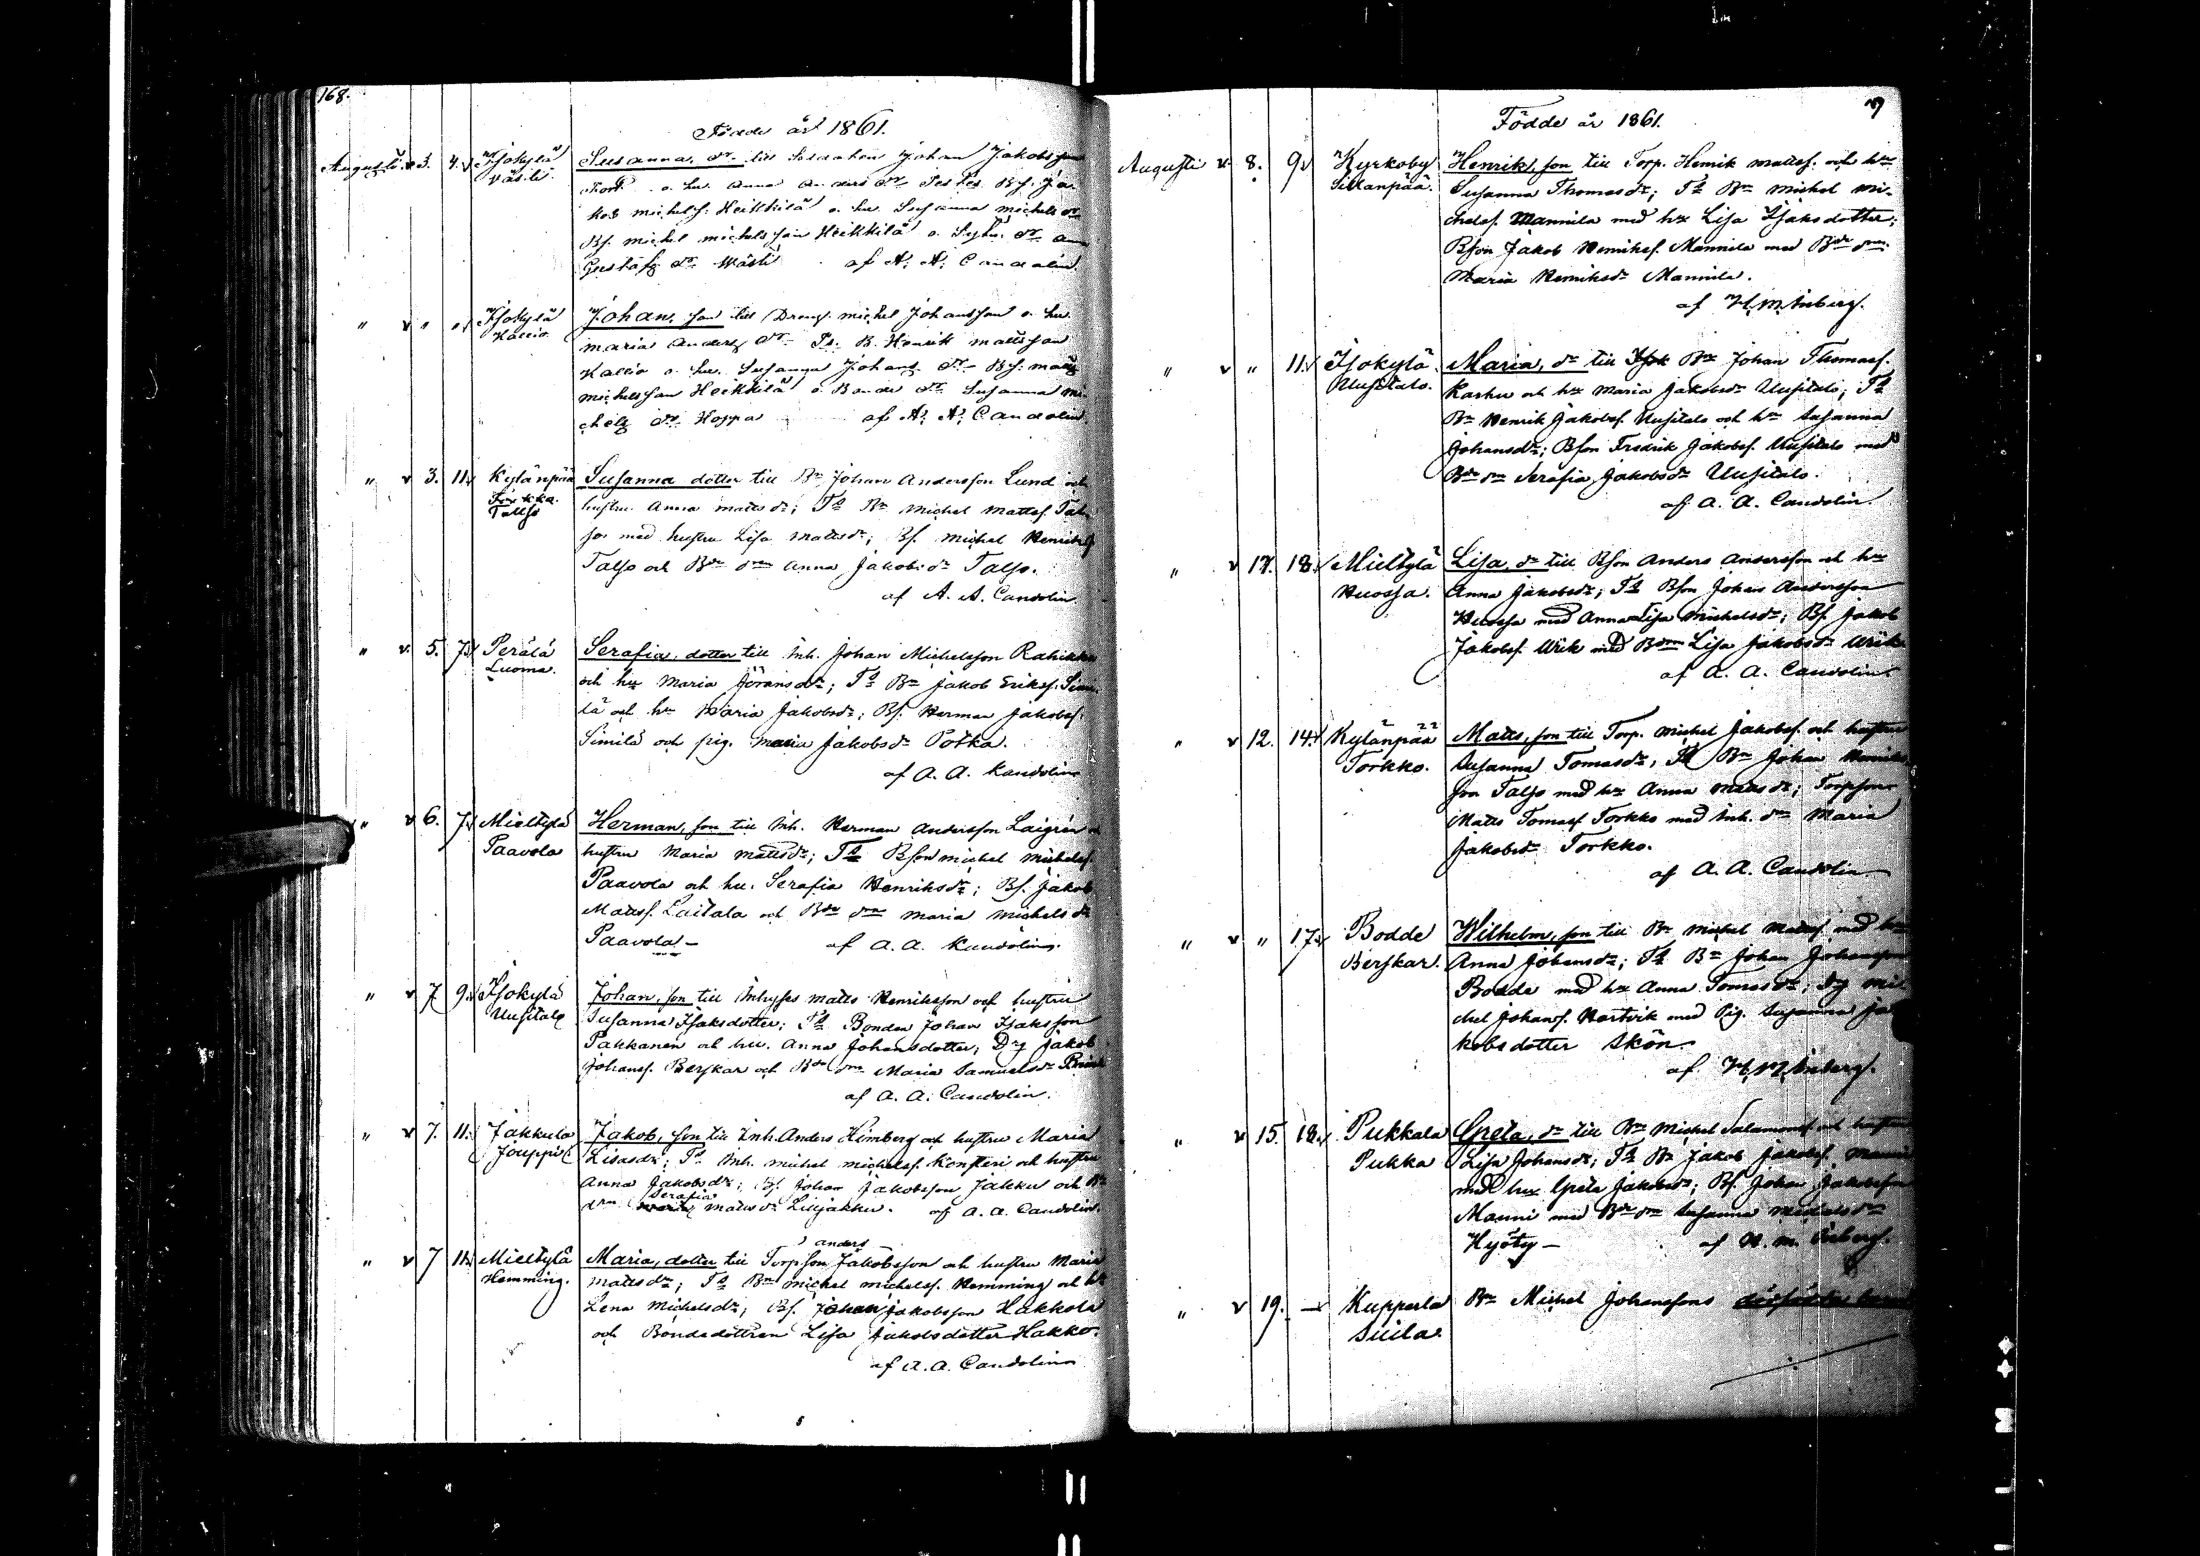 168.
Födde år 1861.
Augusti v 3. 4. v Ijokylä Susanna, dr. till Soldaten Johan Jakobsson
Wästi. o. hu. Anna Anders dr. Testes Bs. Ja
kob Michelss. Heikkilä o. hu. Susanna Michels dr
Bs. Michel Michelsson Heikkilä o. dr.
Gustafs dr. Wästi af A. A. Candolin
" v " " Ijokylä Johan, son till Dreng. Michel Johansson o. hu.
Kallio Maria Anders dr. Ts. B. Henrik Mattsson
Kallio o. hu. Susanna Johans dr. Bs. Matts
Michelsson Heikkilä o. Bonde dr. Susanna Mi
chels dr. Hoppa af A. A. Candolin
" v 3. 11. Kylänpää Susanna dotter till Bn Johan Andersson Lund och
Talso hustru Anna Mattsdr; Ts Bn Michel Mattss. Tal
so med hustru Lisa Mattsdr; Bs. Michel Henriks
Talso och Bde drn Anna Jakobsdr Talso.
af A. A. Candolin.
" v 5. 7. Perälä Serafia, dotter till Inh. Johan Michelsson Rahikka
Luoma. och hu Maria Göransdr; Ts Bn Jakob Erikss. Simi
lä och hu Maria Jakobsdr; Bs. Herman Jakobss.
Similä och pig. Maria Jakobsdr Potka.
af A. A. Kandolin
" v 6. 7. Mieltylä Herman, son till Inh. Herman Andersson Laigrén
Paavola hustru Maria Mattsdr; Ts Bson Michel Michelss.
Paavola och hu. Serafia Henriksdr; Bs. Jakob
Mattss. Laitala och Bde drn Maria Michelsdr
Paavola. — af A. A. Kandolin.
" v 7. 9. Ijokylä Johan, son till Inhyses Matts Henriksson och hustru
Uusitalo Susanna Isaksdotter; Ts Bonden Johan Isaksson
Pakkanen och hu. Anna Johansdotter; Drg Jakob
Johanss. Berskar och Bde drn Maria Samuelsdr
af A. A. Candolin.
" v 7. 11. Jakkula Jakob, son till Inh. Anders Himberg och hustru Maria
Jouppi Lisasdr; Ts Inh. Michel Michelss. Könsteri och hustru
Anna Jakobsdr; Bs. Johan Jakobsson Jakku och Bde
drn Serafia Mattsdr Liisjakku. af A. A. Candolin.
anders
" v 7 11. Mieltylä Maria, dotter till Torpson Jakobsson och hustru Maria
Hemming. Mattsdr; Ts Bn Michel Michelss. Hemming och hu
Lena Michelsdr; Bs. Johan Jakobsson Hakkola
och Bondedottren Lisa Jakobsdotter Hakko.
af A. A. Candolin
Födde år 1861.
Augusti v 8. 9. v Kyrkoby Henrik, son till Torp. Henrik Mattss. och hu
Sillanpää. Susanna Thomasdr; Ts Bn Michel Mi-
chelss. Mannila med hu Lisa Isaksdotter;
Bson Jakob Henrikss. Mannila med Bde drn
Maria Henriksdr Mannila.
af H. M. Inberg.
" v " 11. Ijokylä Maria, dr till Bn Johan Thomass.
Uusitalo. Karhu och hu Maria Jakobsdr Uusitalo; Ts
Bn Henrik Jakobss. Uusitalo och hu Susanna
Johansdr; Bson Fredrik Jakobss. Uusitalo med
Bde drn Serafia Jakobsdr Uusitalo.
af A. A. Candolin
" v 17. 18. Mieltylä Lisa, dr till Bson Anders Andersson och hu
Huossa. Anna Jakobsdr; Ts Bson Johan Andersson
Huossa med Anna Lisa Michelsdr; Bs. Jakob
Jakobss. Wrik med Bdrn Lisa Jakobsdr Wrik
af A. A. Candolin
" v 12. 14. Kylänpää Matts, son till Torp. Michel Jakobss. och hustru
Torkko. Susanna Tomasdr; Ts Bn Johan Henriks
son Talso med hu Anna Mattsdr; Torpson
Matts Tomass. Torkko med Inh. drn Maria
Jakobsdr Torkko.
af A. A. Candolin
" v " 17. Bodde Wilhelm, son till Bn Michel Mattss. med hu
Berskar. Anna Johansdr; Ts Bn Johan Johansson
Bodde med hu Anna Tomasdr; Drg Mi
chel Johanss. Hartvik med Pig. Susanna Ja
kobsdotter Skön.
af H. M. Inberg.
" v 15. 18. Pukkala Greta, dr till Bn Michel Salamonss. och hustru
Pukka Lisa Johansdr; Ts Bn Jakob Jakobss. Manni
med hu Greta Jakobsdr; Bs. Johan Jakobsson
Manni med Bde drn Susanna Michelsdr
Hyöty — af H. M. Inberg.
" v 19. — Kupparla Bn Michel Johanssons
Suila.